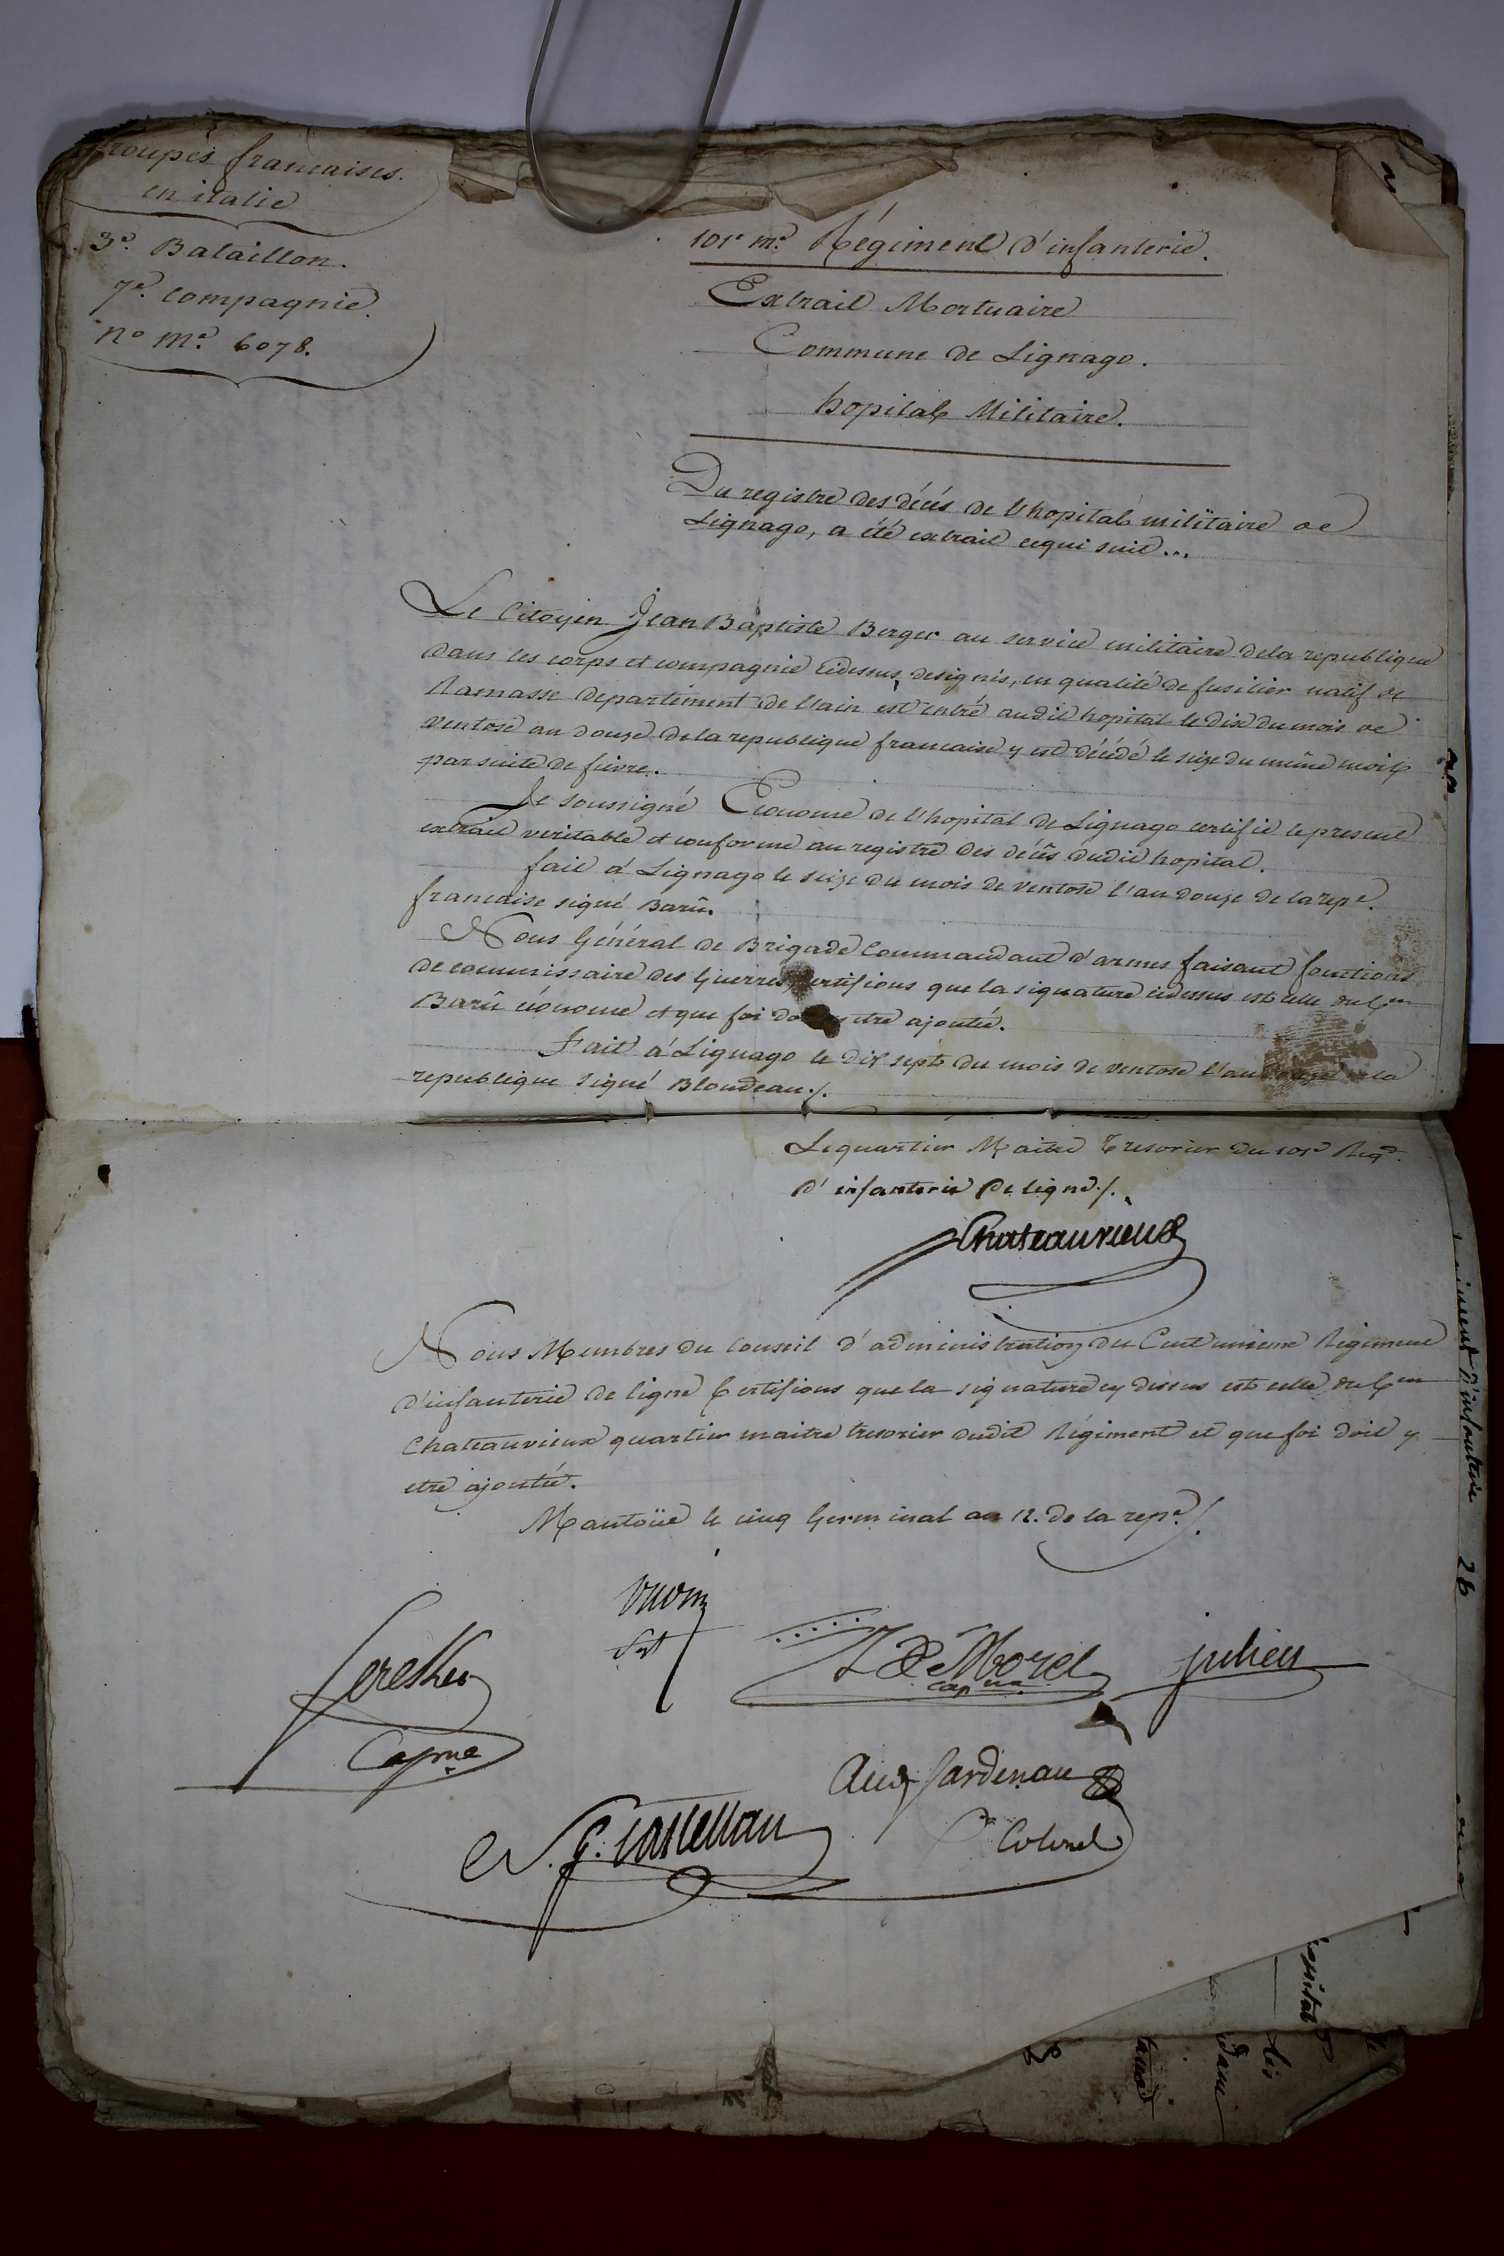 troupes francaises.
en italie
3e. Bataillon.
7e. compagnie.
no me. 6078.
101e me. Régiment d'infanterie.
Extrait Mortuaire
Commune de Lignago.
hopital Militaire.
Du registre des décés de l'hopital militaire de
Lignago, a été extrait cequi suit...
Le Citoyen Jean Baptiste Berger au service militaire dela republique
dans les corps et compagnie cidessus designés, en qualité de fusilier natif de
Ramasse departement de l'ain est entré audit hopital le dix du mois de
ventose an douze dela republique francaise y est décédé le seize du même mois
par suite de fievre.
Je soussigné Econome de l'hopital de Lignago certifie le present
extrait veritable et conforme au registre des décès dudit hopital.
fait à Lignago le seize du mois de ventose l'an douze de la repe.
francaise signé Barû.
Nous Général de Brigade Commandant d'armes faisant fonctions
de commissaire des Guerres, certifions que la signature cidessus est celle du Cen
Barû économe et que foi doit être ajoutée.
Fait à Lignago le dix sept du mois de ventose l'an la
republique signé Blondeau./.
Le quartier Maitre Tresorier du 101e Regt.
d'infanterie de ligne./.
Chateauvieux
Nous Membres du Conseil d'administration du Cent unieme Régiment
d'infanterie de ligne Certifions que la signature cy dessus est celle du Cen
Chateauvieux quartier maitre tresorier dudit Régiment et que foi doit y
etre ajoutée.
Mantoüe le cinq Germinal an 12. de la repe./.
Capne
Morel
Capne
julien
Ardenau
Colonel
G. Castellan
infanterie 26